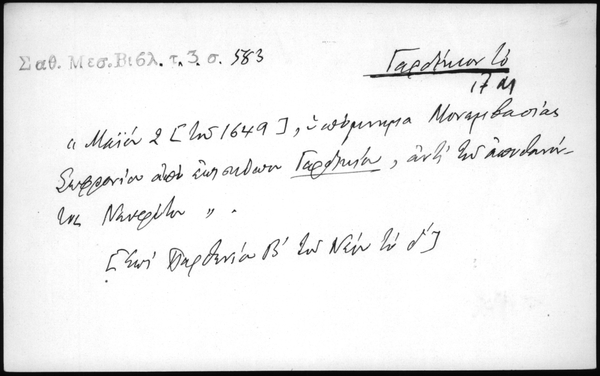 Σαθ. Μεσ. Βιβλ. τ. 3. σ. 583
Γαρδίκιον τὸ
« Μαΐου 2 [τοῦ 1649], ὑπόμνημα Μονεμβασίας
Σωφρονίου ἀπὸ ἐπισκόπου Γαρδικίου, ἀντὶ τοῦ ἀποθανόν-
τος Νεκταρίου ».
[Ἐπὶ Παρθενίου Β' τοῦ Νέου τὸ δ']